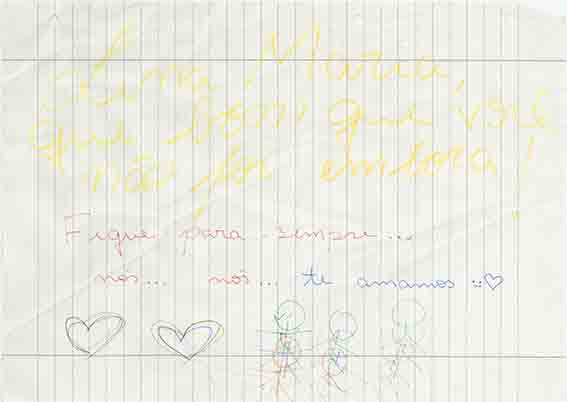 Lina Maria,
que bom que você
não foi embora!
Fique para sempre...
nós... nós... te amamos